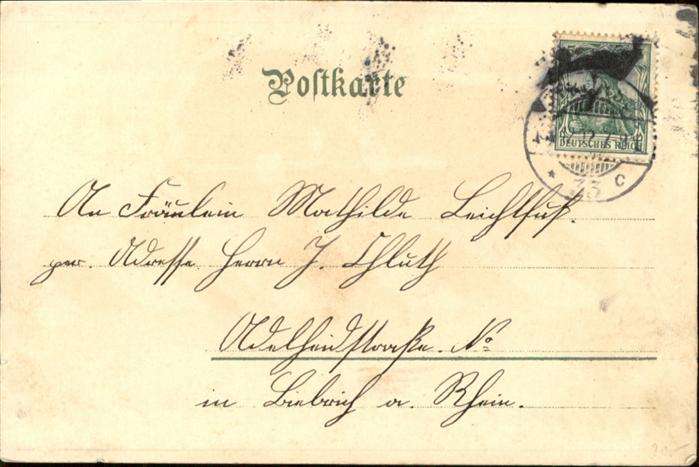 Postkarte
DEUTSCHES REICH
* 33 c
An Fräulein Mathilde Leichtfuß.
per. Adresse. Herrn J. Chluth
Adelheidstraße. No
in Biebrich a. Rhein.